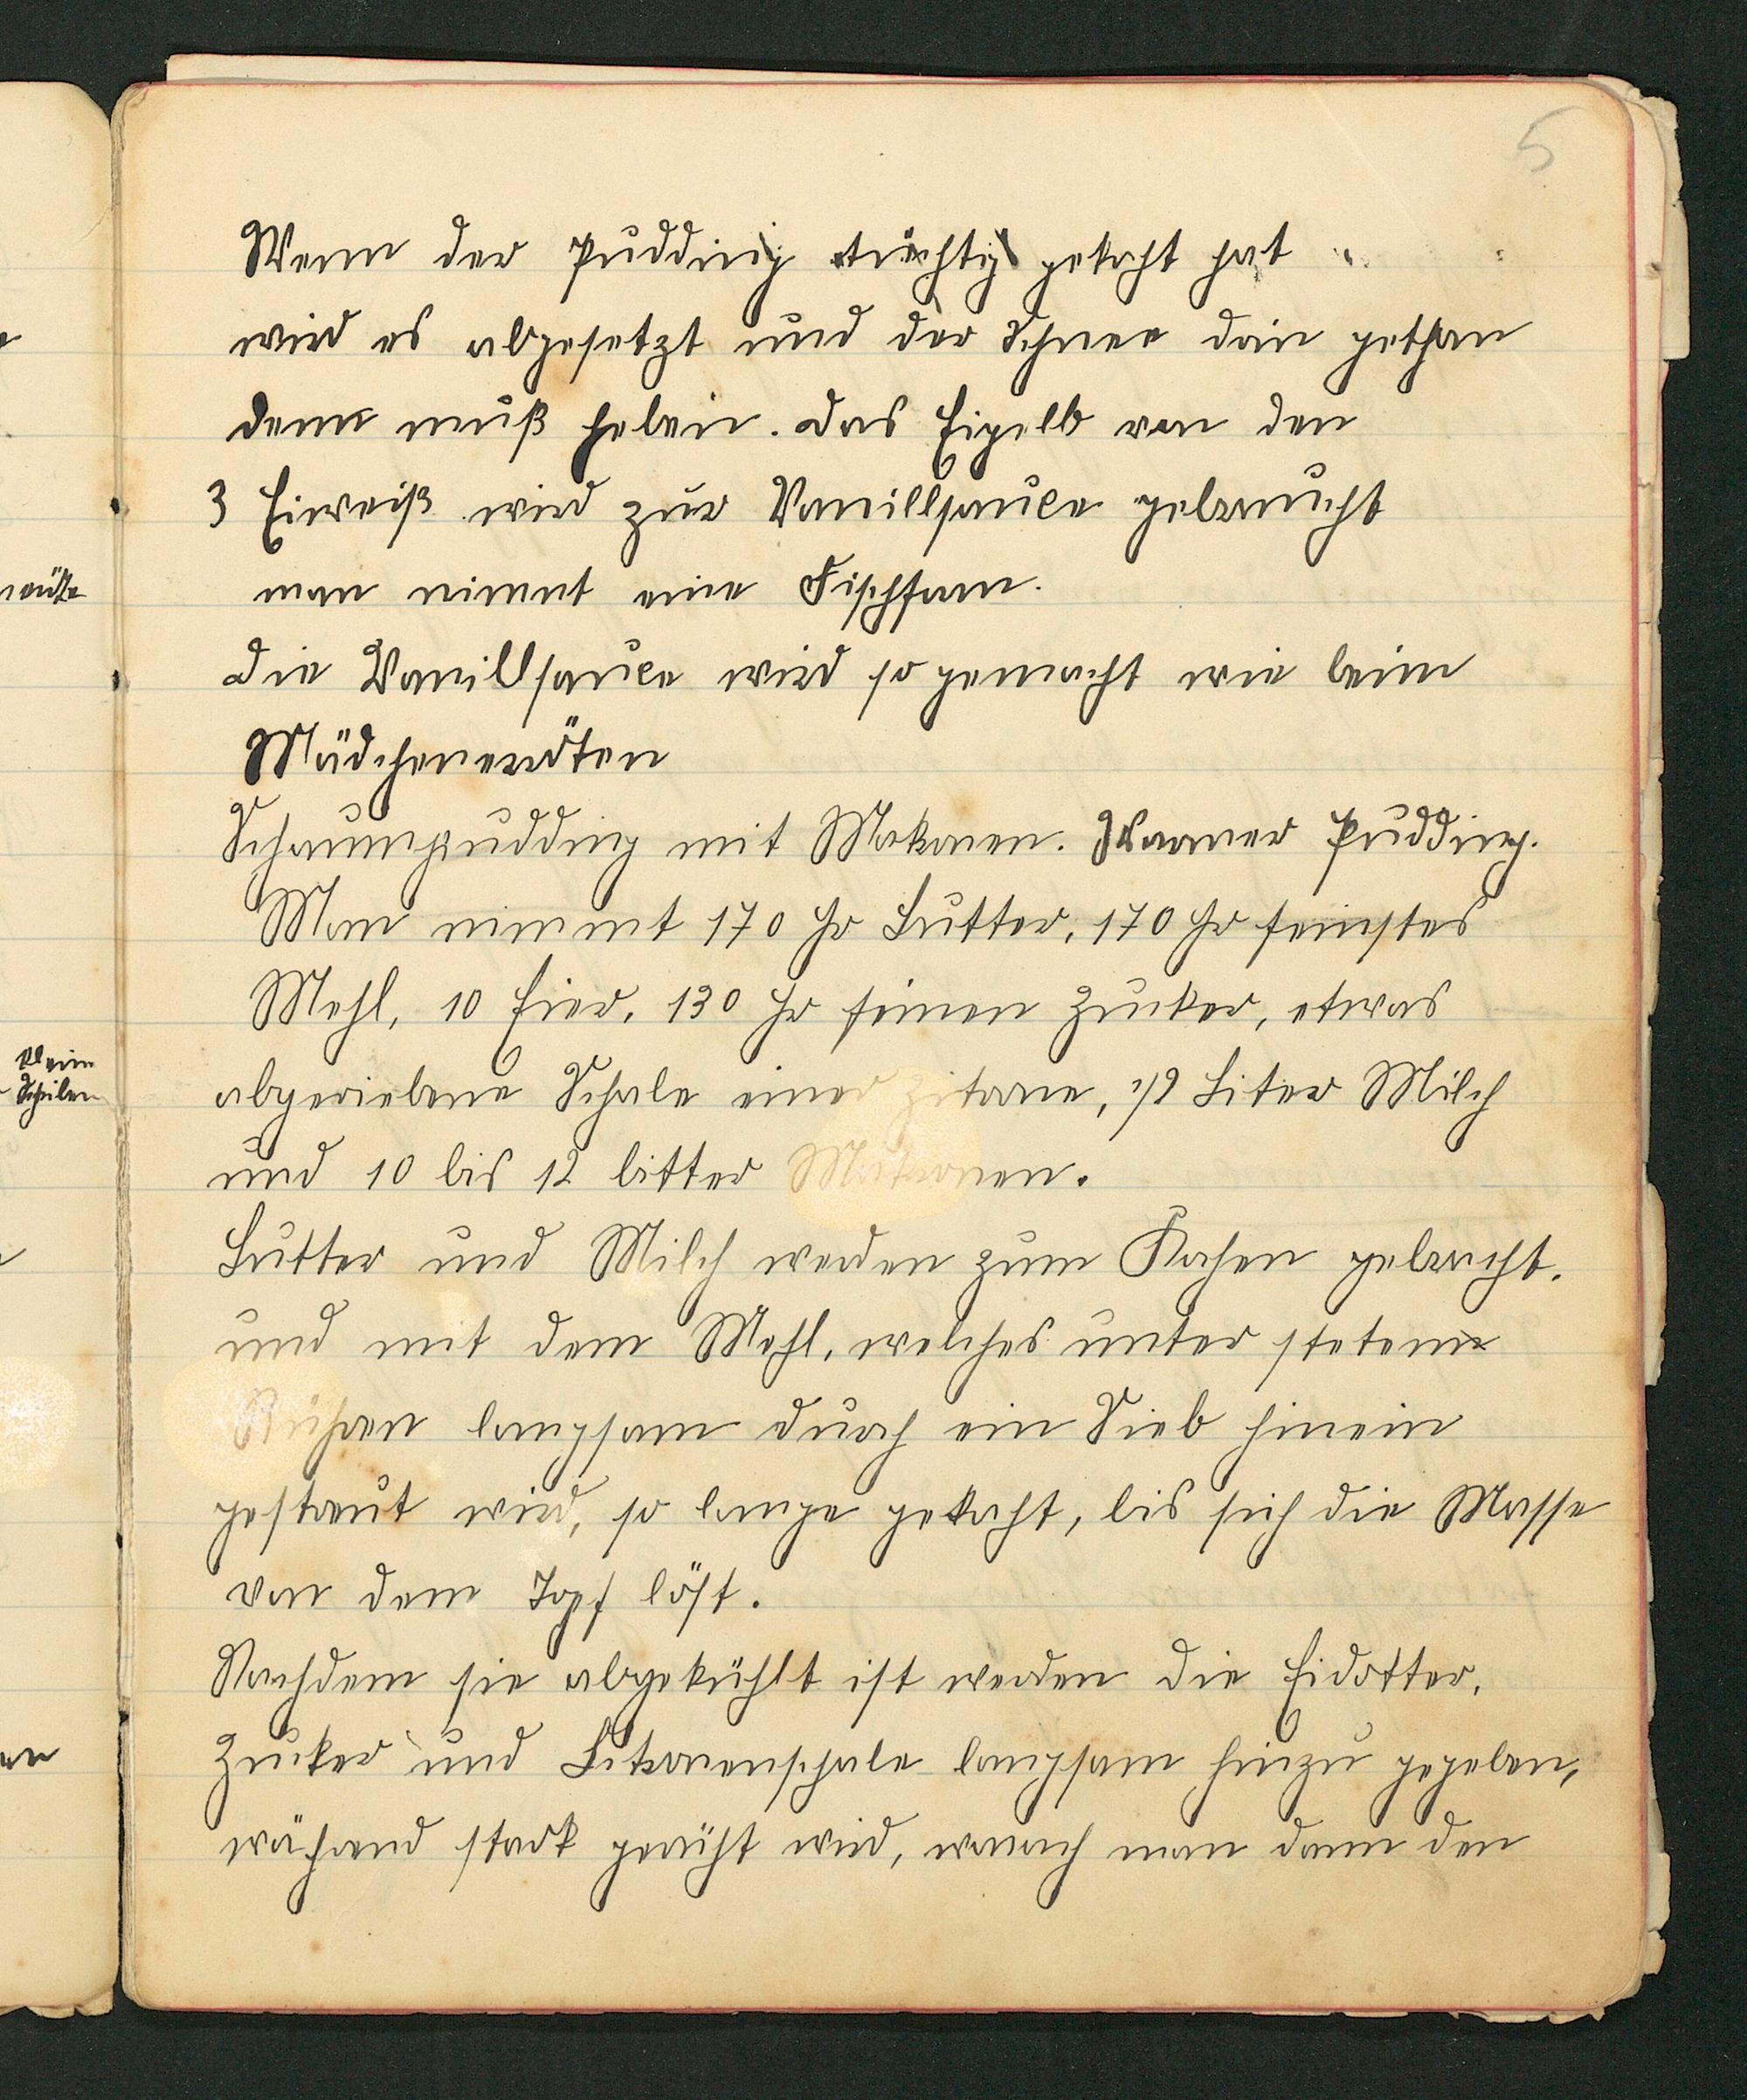 5
Wenn der Pudding tüchtig gekocht hat
wird es abgesetzt und der Schnee drin gethan
denn muß
das Eigelb von den
3 Eiweiß wird zur Vanillsauce gebraucht
man nimmt eine Fischform.
die Vanillsauce wird so gemacht wie beim
Mädchenerröten
Schaumpudding mit Makronen. Warmer Pudding.
Man nimmt 170 Gr Butter, 170 Gr feinstes
Mehl, 10 Eier, 130 Gr feinen Zucker, etwas
abgeriebene Schale einer Zitrone, 1/2 Liter Milch
und 10 bis 12 bitter Makronen.
Butter und Milch werden zum Kochen gebracht.
und mit dem Mehl, welches unter stetem
Rühren langsam durch ein Sieb hinein
gestreut wird, so lange gekocht, bis sich die Masse
von dem Topf löst.
Nachdem sie abgekühlt ist werden die Eidotter,
Zucker und Zitronenschale langsam hinzu gegeben,
während stark gerührt wird, wonach man dann den
klein